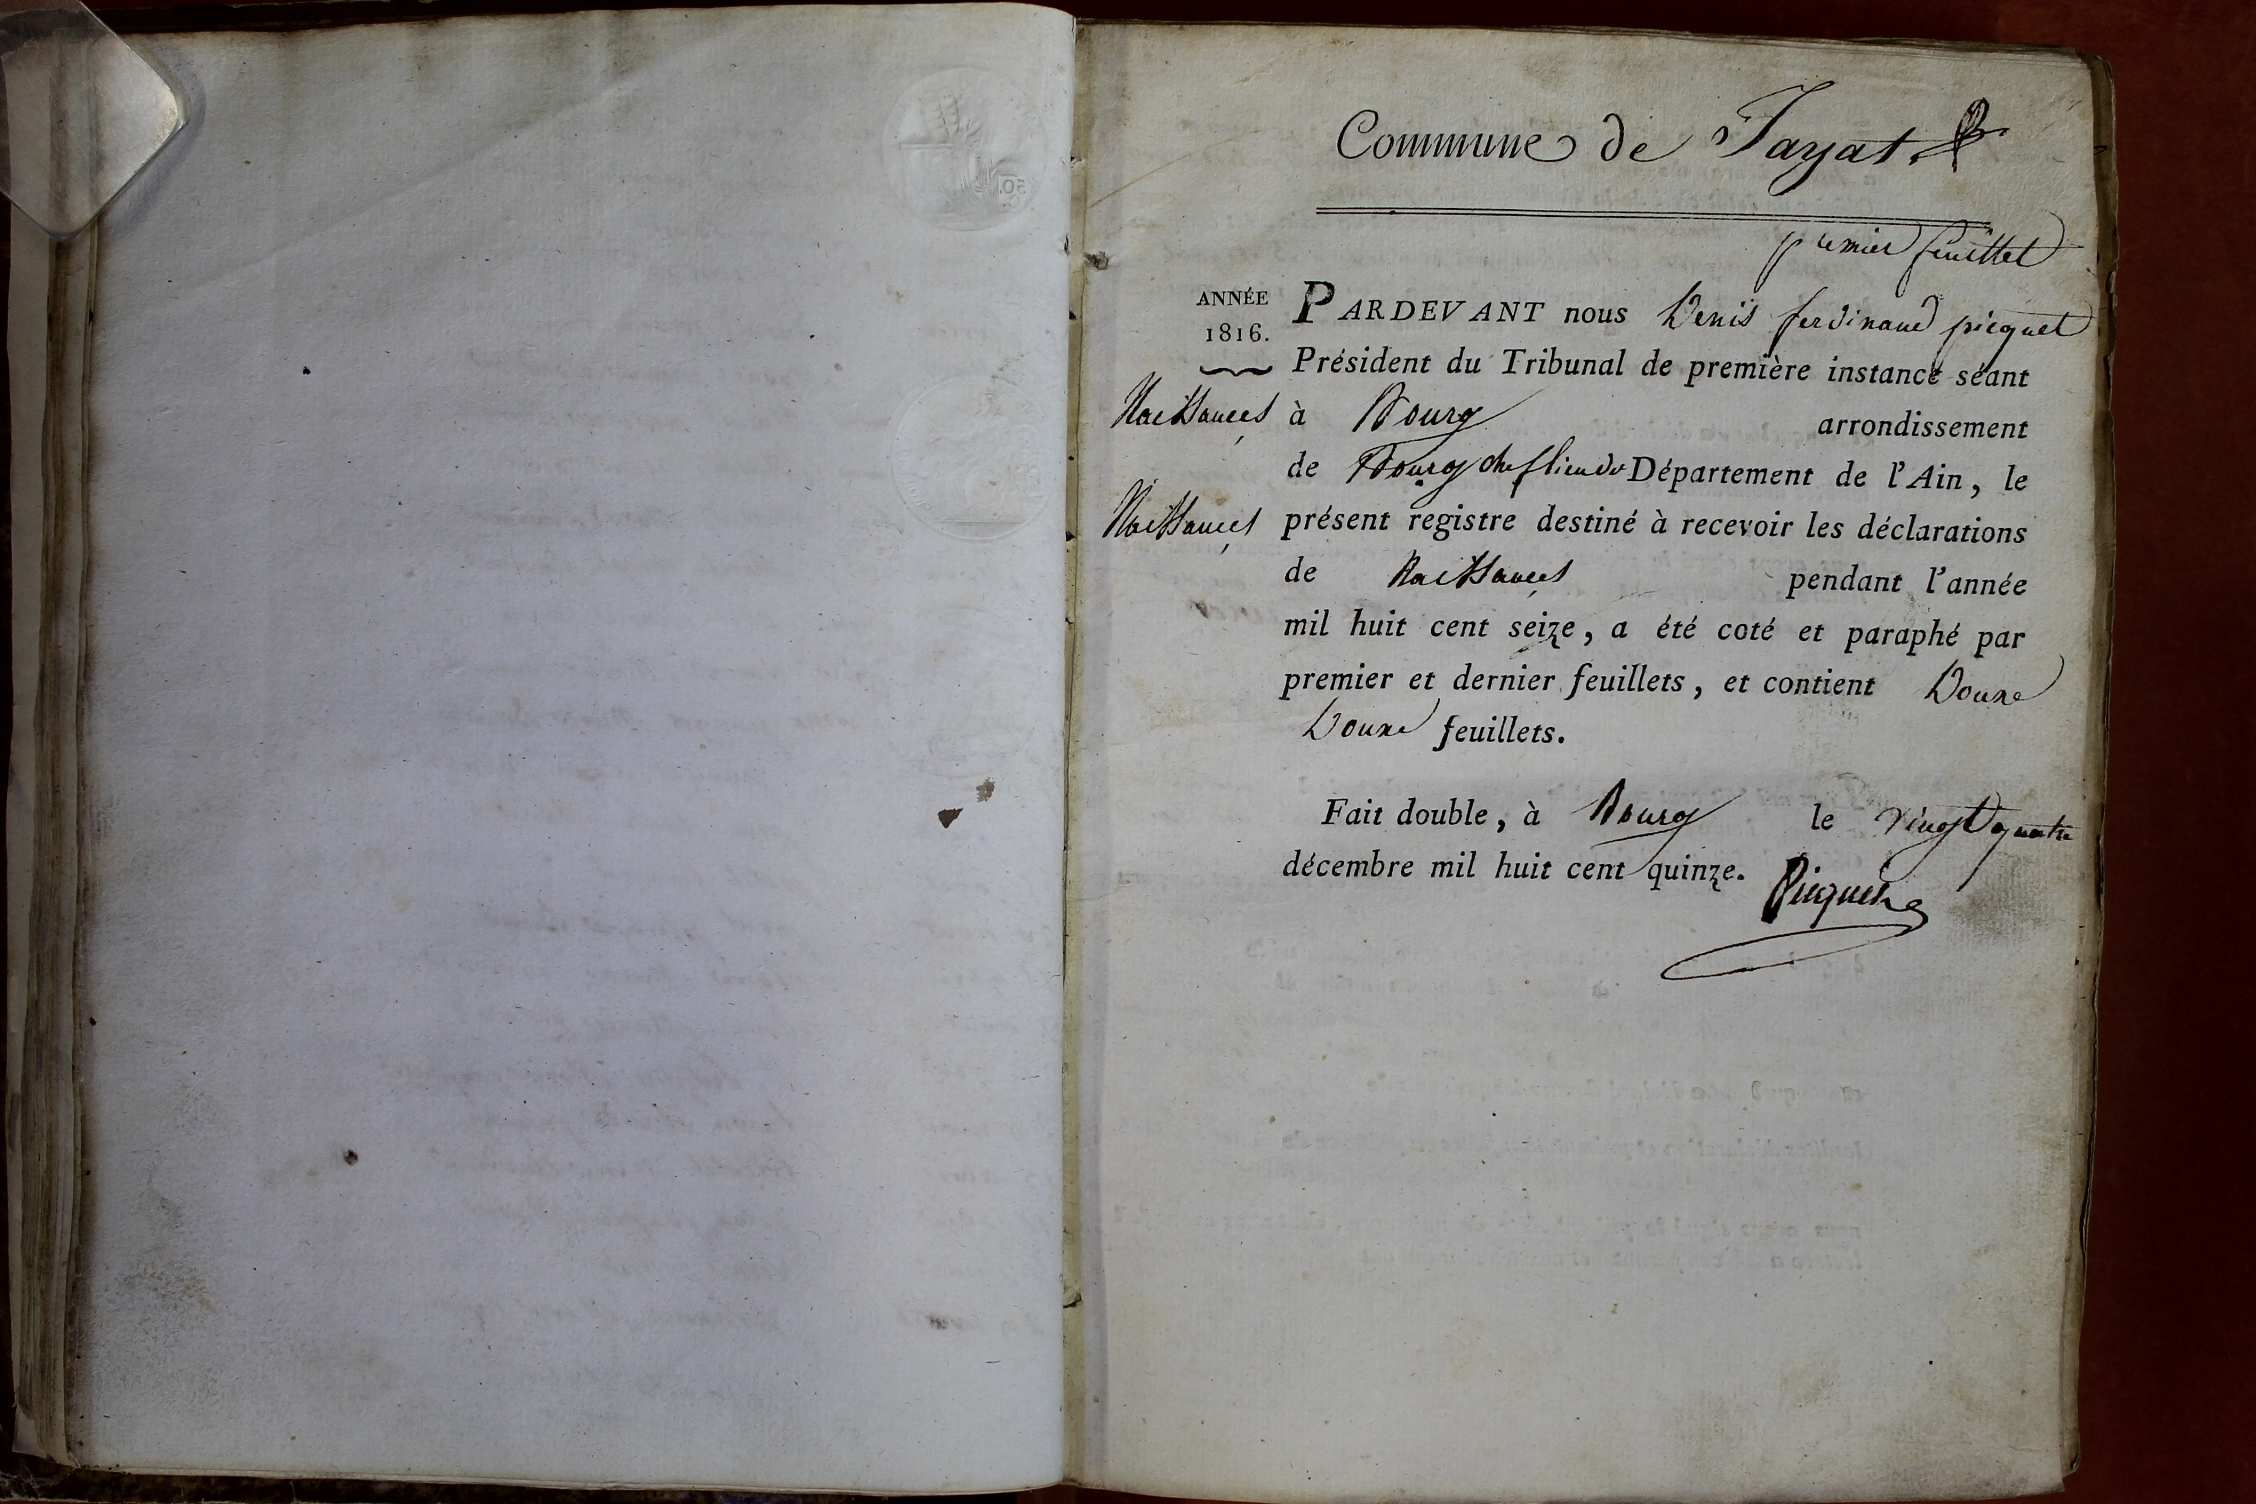 Commune de Jayat.
premier feuillet
ANNÉE
1816.
Naissances
Naissances
PARDEVANT nous Denis ferdinand picquet
Président du Tribunal de première instance séant
à Bourg arrondissement
de Bourg cheflieu du Département de l'Ain, le
présent registre destiné à recevoir les déclarations
de Naissances pendant l'année
mil huit cent seize, a été coté et paraphé par
premier et dernier feuillets, et contient Douze
Douze feuillets.
Fait double, à Bourg le vingt quatre
décembre mil huit cent quinze.
Picquet